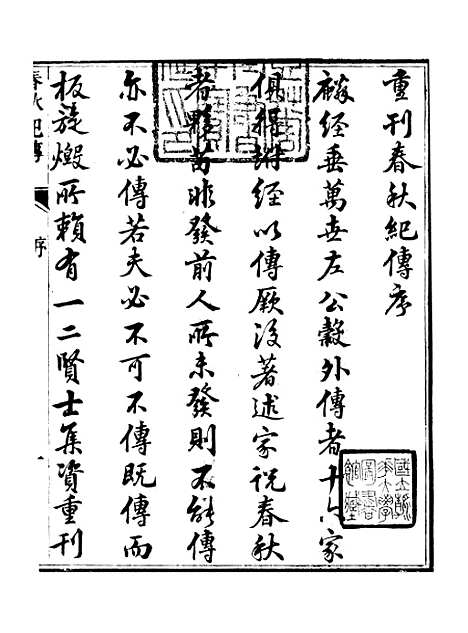 重刊春秋紀傳序
麟經垂萬世左公穀外傳者十八家
俱得附經以傳厥後著述家說春秋
者夥苟非發前人所未發則不能傳
亦不必傳若夫必不可不傳既傳而
板旋燬所賴有一二賢士集資重刊
春秋紀傳
序
一